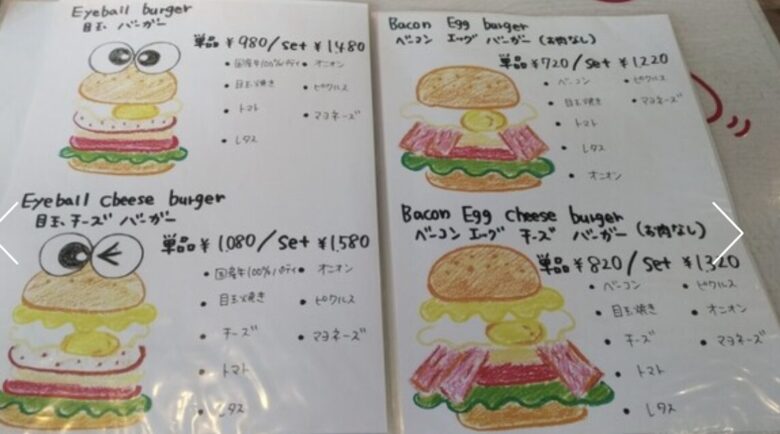 Eyeball burger
目玉 バーガー
単品 ¥980/set ¥1480
・国産牛100%パティ ・オニオン
・目玉焼き ・ピクルス
・トマト ・マヨネーズ
・レタス
Eyeball cheese burger
目玉チーズ バーガー
単品 ¥1080/set ¥1,580
・国産牛100%パティ ・オニオン
・目玉焼き ・ピクルス
・チーズ ・マヨネーズ
・トマト
・レタス
Bacon Egg burger
ベーコン エッグ バーガー (お肉なし)
単品 ¥720/set ¥1,220
・ベーコン ・ピクルス
・目玉焼き ・マヨネーズ
・トマト
・レタス
・オニオン
Bacon Egg cheese burger
ベーコン エッグ チーズ バーガー (お肉なし)
単品 ¥820/set ¥1320
・ベーコン ・ピクルス
・目玉焼き ・オニオン
・チーズ ・マヨネーズ
・トマト
・レタス